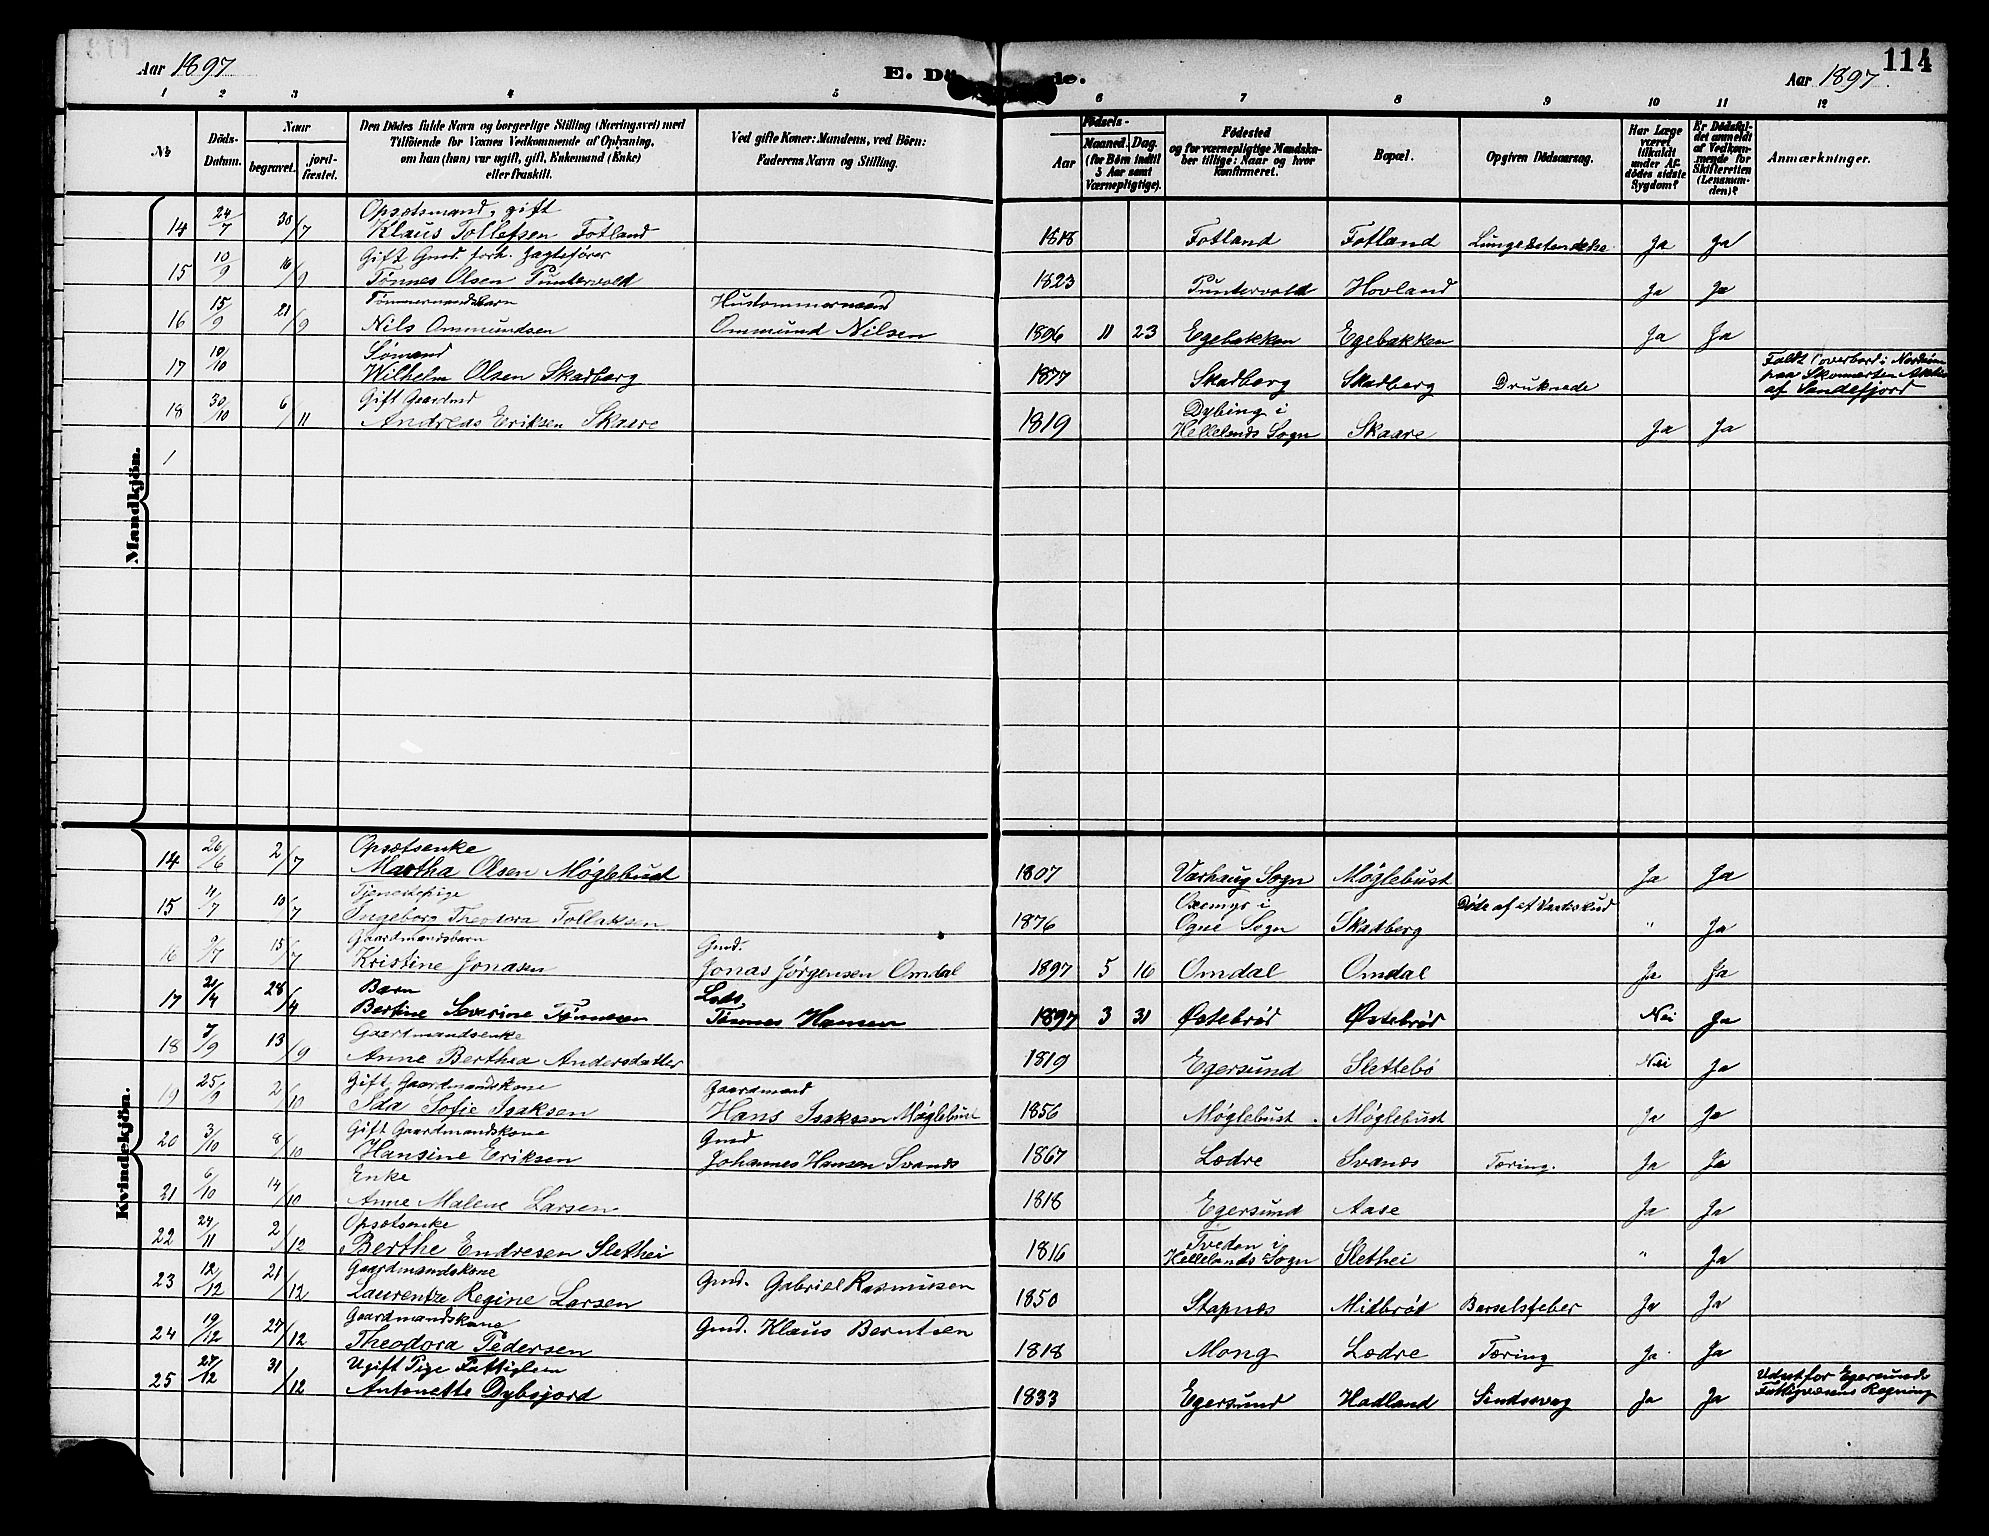 Aar 1897
E. Dö
de.
Aar 1897
114
1 2 3 4 5 6 7 8 9 10 11 12
№
Döds-Datum.
Naar
begravet.
jord-fæstet.
Den Dödes fulde Navn og borgerlige Stilling (Næringsvei) med
Tilföiende for Voxnes Vedkommende af Oplysning,
om han (hun) var ugift, gift, Enkemand (Enke)
eller fraskilt.
Ved gifte Koner: Mandens, ved Börn:
Faderens Navn og Stilling.
Födsels-
Aar
Maaned. Dag.
(for Börn indtil
5 Aar samt
Værnepligtige).
Födested
og for værnepligtige Mandska-
ber tillige: Naar og hvor
konfirmeret.
Bopæl.
Opgiven Dödsaarsag.
Har Læge
været
tilkaldt
under Af-
dödes sidste
Sygdom?
Er Dödsfal-
det anmeldt
af Vedkom-
mende for
Skifteretten
(Lensman-
den)?
Anmærkninger.
Mandkjön.
Opsætsmand, gift
14 24/7 30/7 Klaus Tollefsen Fotland 1818 Fotland Fotland Lungebetændelse Ja Ja
Gift Gmd. forh. Jagtefører
15 10/9 16/9 Tønnes Olsen Puntervold 1823 Puntervold Hovland Ja Ja
Tømmermandsbarn Hustømmermand
16 15/9 21/9 Nils Ommundsen Ommund Nilsen 1896 11 23 Egebakken Egebakken Ja Ja
Sømand
17 10/10 Wilhelm Olsen Skadberg 1877 Skadberg Skadberg Druknede
Faldt overbord i Nordsøen
paa Skonnerten
af Sandefjord
Gift Gaardmd
18 30/10 6/11 Andreas Eriksen Skaare 1819 Dybing i
Hellelands Sogn Skaare Ja Ja
1
Kvindekjön.
Opsætsenke
14 26/6 2/7 Martha Olsen Møglebust 1807 Varhaug Sogn Møglebust Ja Ja
Tjenestepige
15 4/7 10/7 Ingeborg Theodora Tollaksen 1876
Ogne Sogn Skadberg Døde af et Vaadeskud " Ja
Gaardmandsbarn Gmd.
16 9/7 15/7 Kristine Jonasen Jonas Jørgensen Omdal 1897 5 16 Omdal Omdal Ja Ja
Barn Lods
17 21/4 28/4 Bertine Severine Tønnesen Tønnes Hansen 1897 3 31 Østebrød Østebrød Nei Ja
Gaardmandsenke
18 7/9 13/9 Anne Berthea Andersdatter 1819 Egersund Slettebø Nei Ja
Gift Gaardmandskone Gaardmand
19 25/9 2/10 Ida Sofie Isaksen Hans Isaksen Møglebust 1856 Møglebust Møglebust Ja Ja
Gift Gaardmandskone Gmd
20 3/10 8/10 Hansine Eriksen Johannes Hansen Svanes 1867 Lædre Svanes Tæring. Ja Ja
Enke
21 6/10 14/10 Anne Malene Larsen 1818 Egersund Aase Ja Ja
Opsætsenke
22 24/11 2/12 Berthe Endresen Slethei 1816 Tveden i
Hellelands Sogn Slethei " Ja
Gaardmandskone
23 12/12 21/12 Laurentze Regine Larsen Gmd. Gabriel Rasmussen 1850 Stapnes Midbrød Barselsfeber Ja Ja
Gaardmandskone
24 19/12 27/12 Theodora Pedersen Gmd. Klaus Berntsen 1818 Mong Lædre Tæring Ja Ja
Ugift Pige Fattiglem
25 27/12 31/12 Antonette Dybsjord 1833 Egersund Hadland Sindssvag Ja Ja
Udsat for Egersunds
Fattigvæsens Regning